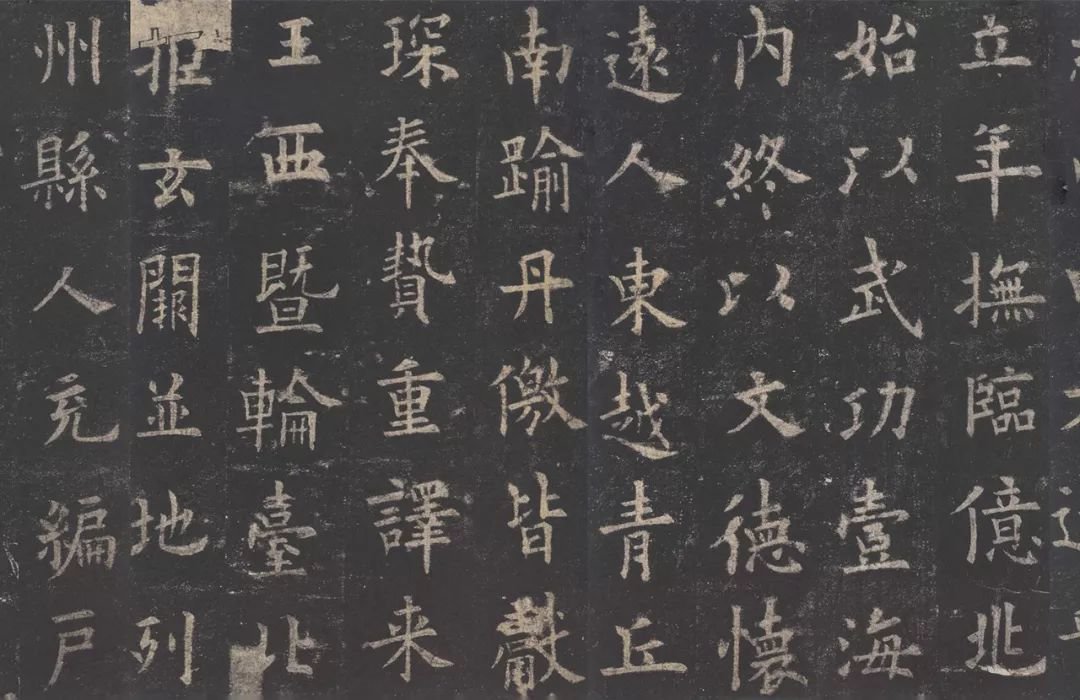 立年撫臨億兆
始以武功壹海
内終以文德懷
遠人東越青丘
南踰丹儌皆獻
琛奉贄重譯来
王西暨輪臺北
拒玄闕並地列
州縣人充編戸